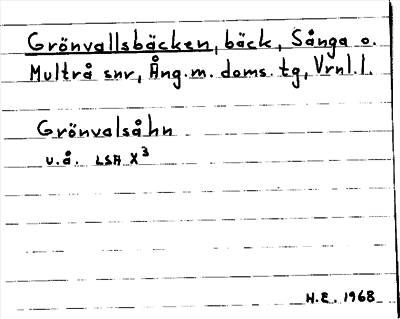 Grönvallsbäcken, bäck, Sånga o.
Multrå snr, Ång.m. doms.tg, Vrnl.l.
Grönvalsåhn
u.å. LSA X³
H.E. 1968